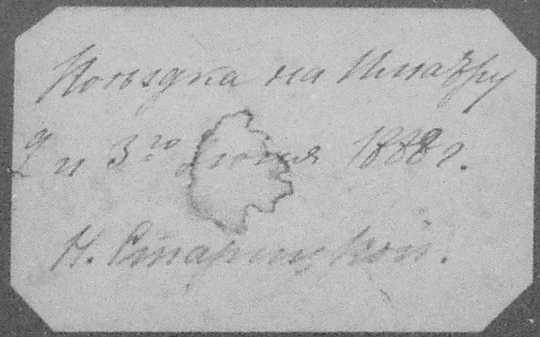 Поѣздка на Имагру
2 и 3го Июня 1888 г.
Н. Старицкой.